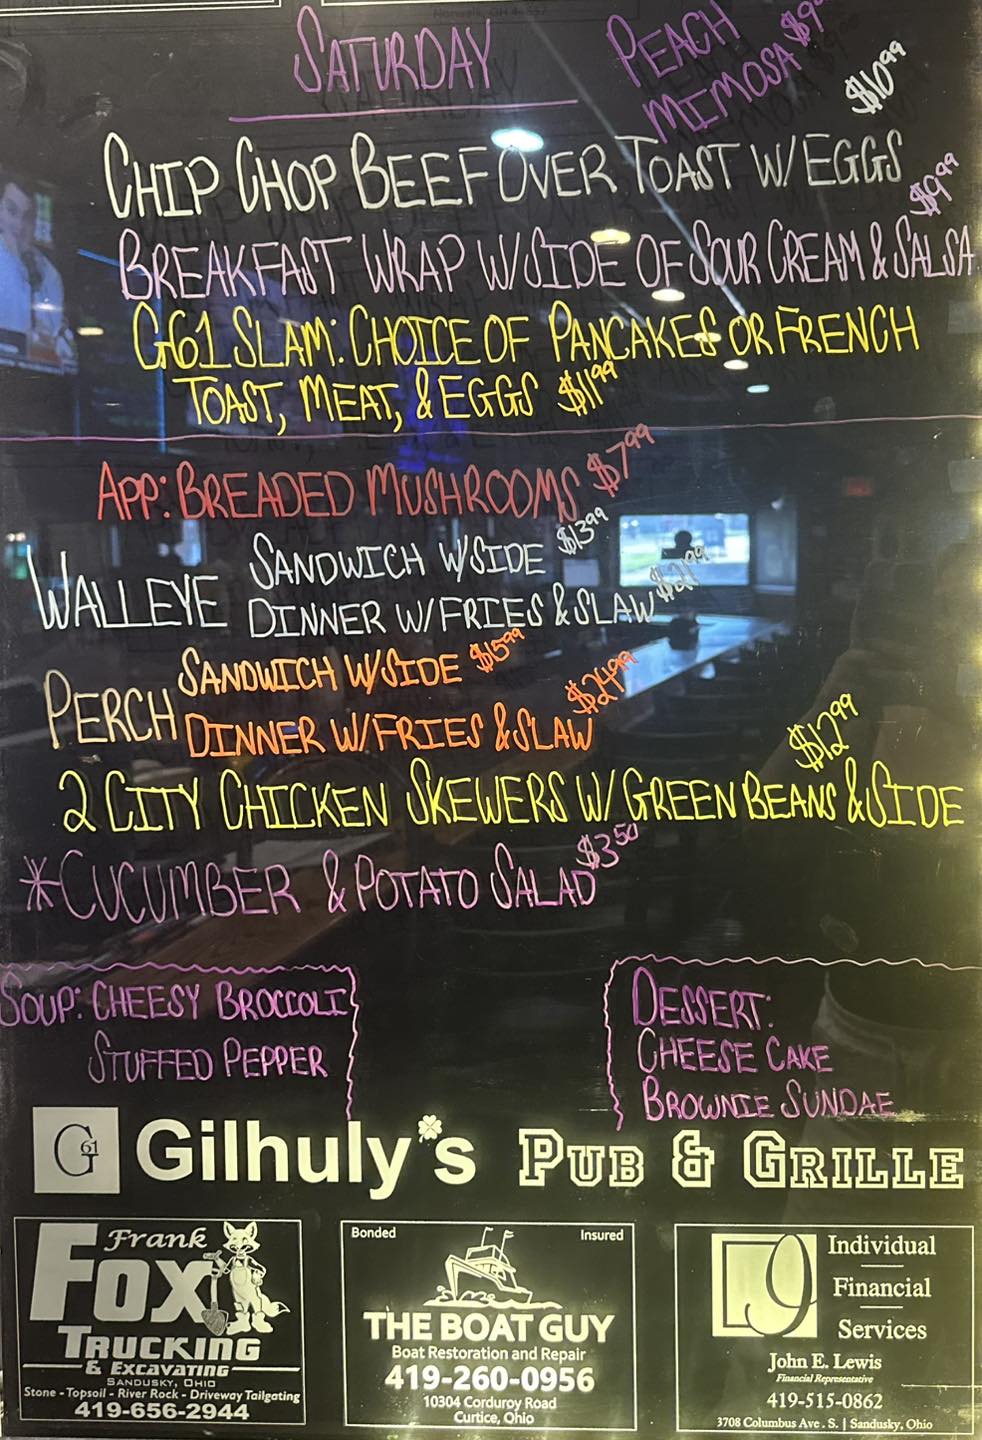 SATURDAY
PEACH
MIMOSA $9
$10.99
CHIP CHOP BEEF OVER TOAST W/ EGGS
$9.99
BREAKFAST WRAP W/SIDE OF SOUR CREAM & SALSA
G61 SLAM: CHOICE OF PANCAKES OR FRENCH
TOAST, MEAT, & EGGS $11.99
APP: BREADED MUSHROOMS $7.99
WALLEYE
SANDWICH W/SIDE $13.99
DINNER W/FRIES & SLAW
PERCH
SANDWICH W/SIDE $15.99
DINNER W/FRIES & SLAW $24.99
$12.99
2 CITY CHICKEN SKEWERS W/ GREEN BEANS & SIDE
*CUCUMBER & POTATO SALAD $3.50
SOUP: CHEESY BROCCOLI
STUFFED PEPPER
DESSERT:
CHEESE CAKE
BROWNIE SUNDAE
G61 Gilhuly's PUB & GRILLE
Frank
FOX
TRUCKING
& EXCAVATING
SANDUSKY, OHIO
Stone - Topsoil - River Rock - Driveway Tailgating
419-656-2944
Bonded Insured
THE BOAT GUY
Boat Restoration and Repair
419-260-0956
10304 Corduroy Road
Curtice, Ohio
Individual
Financial
Services
John E. Lewis
Financial Representative
419-515-0862
3708 Columbus Ave. S. | Sandusky, Ohio